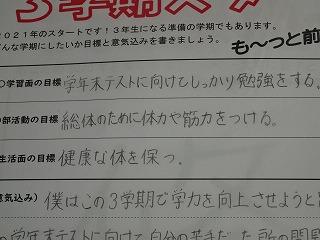 3学期スタ
2021年のスタートです！3年生になる準備の学期でもあります。
んな学期にしたいか目標と意気込みを書きましょう。
も～っと前
○学習面の目標 学年末テストに向けてしっかり勉強をする。
部活動の目標 総体のために体力や筋力をつける。
生活面の目標 健康な体を保つ。
意気込み） 僕はこの3学期で学力を向上させようと
学年末テストに向けて自分の苦手だった所の問題